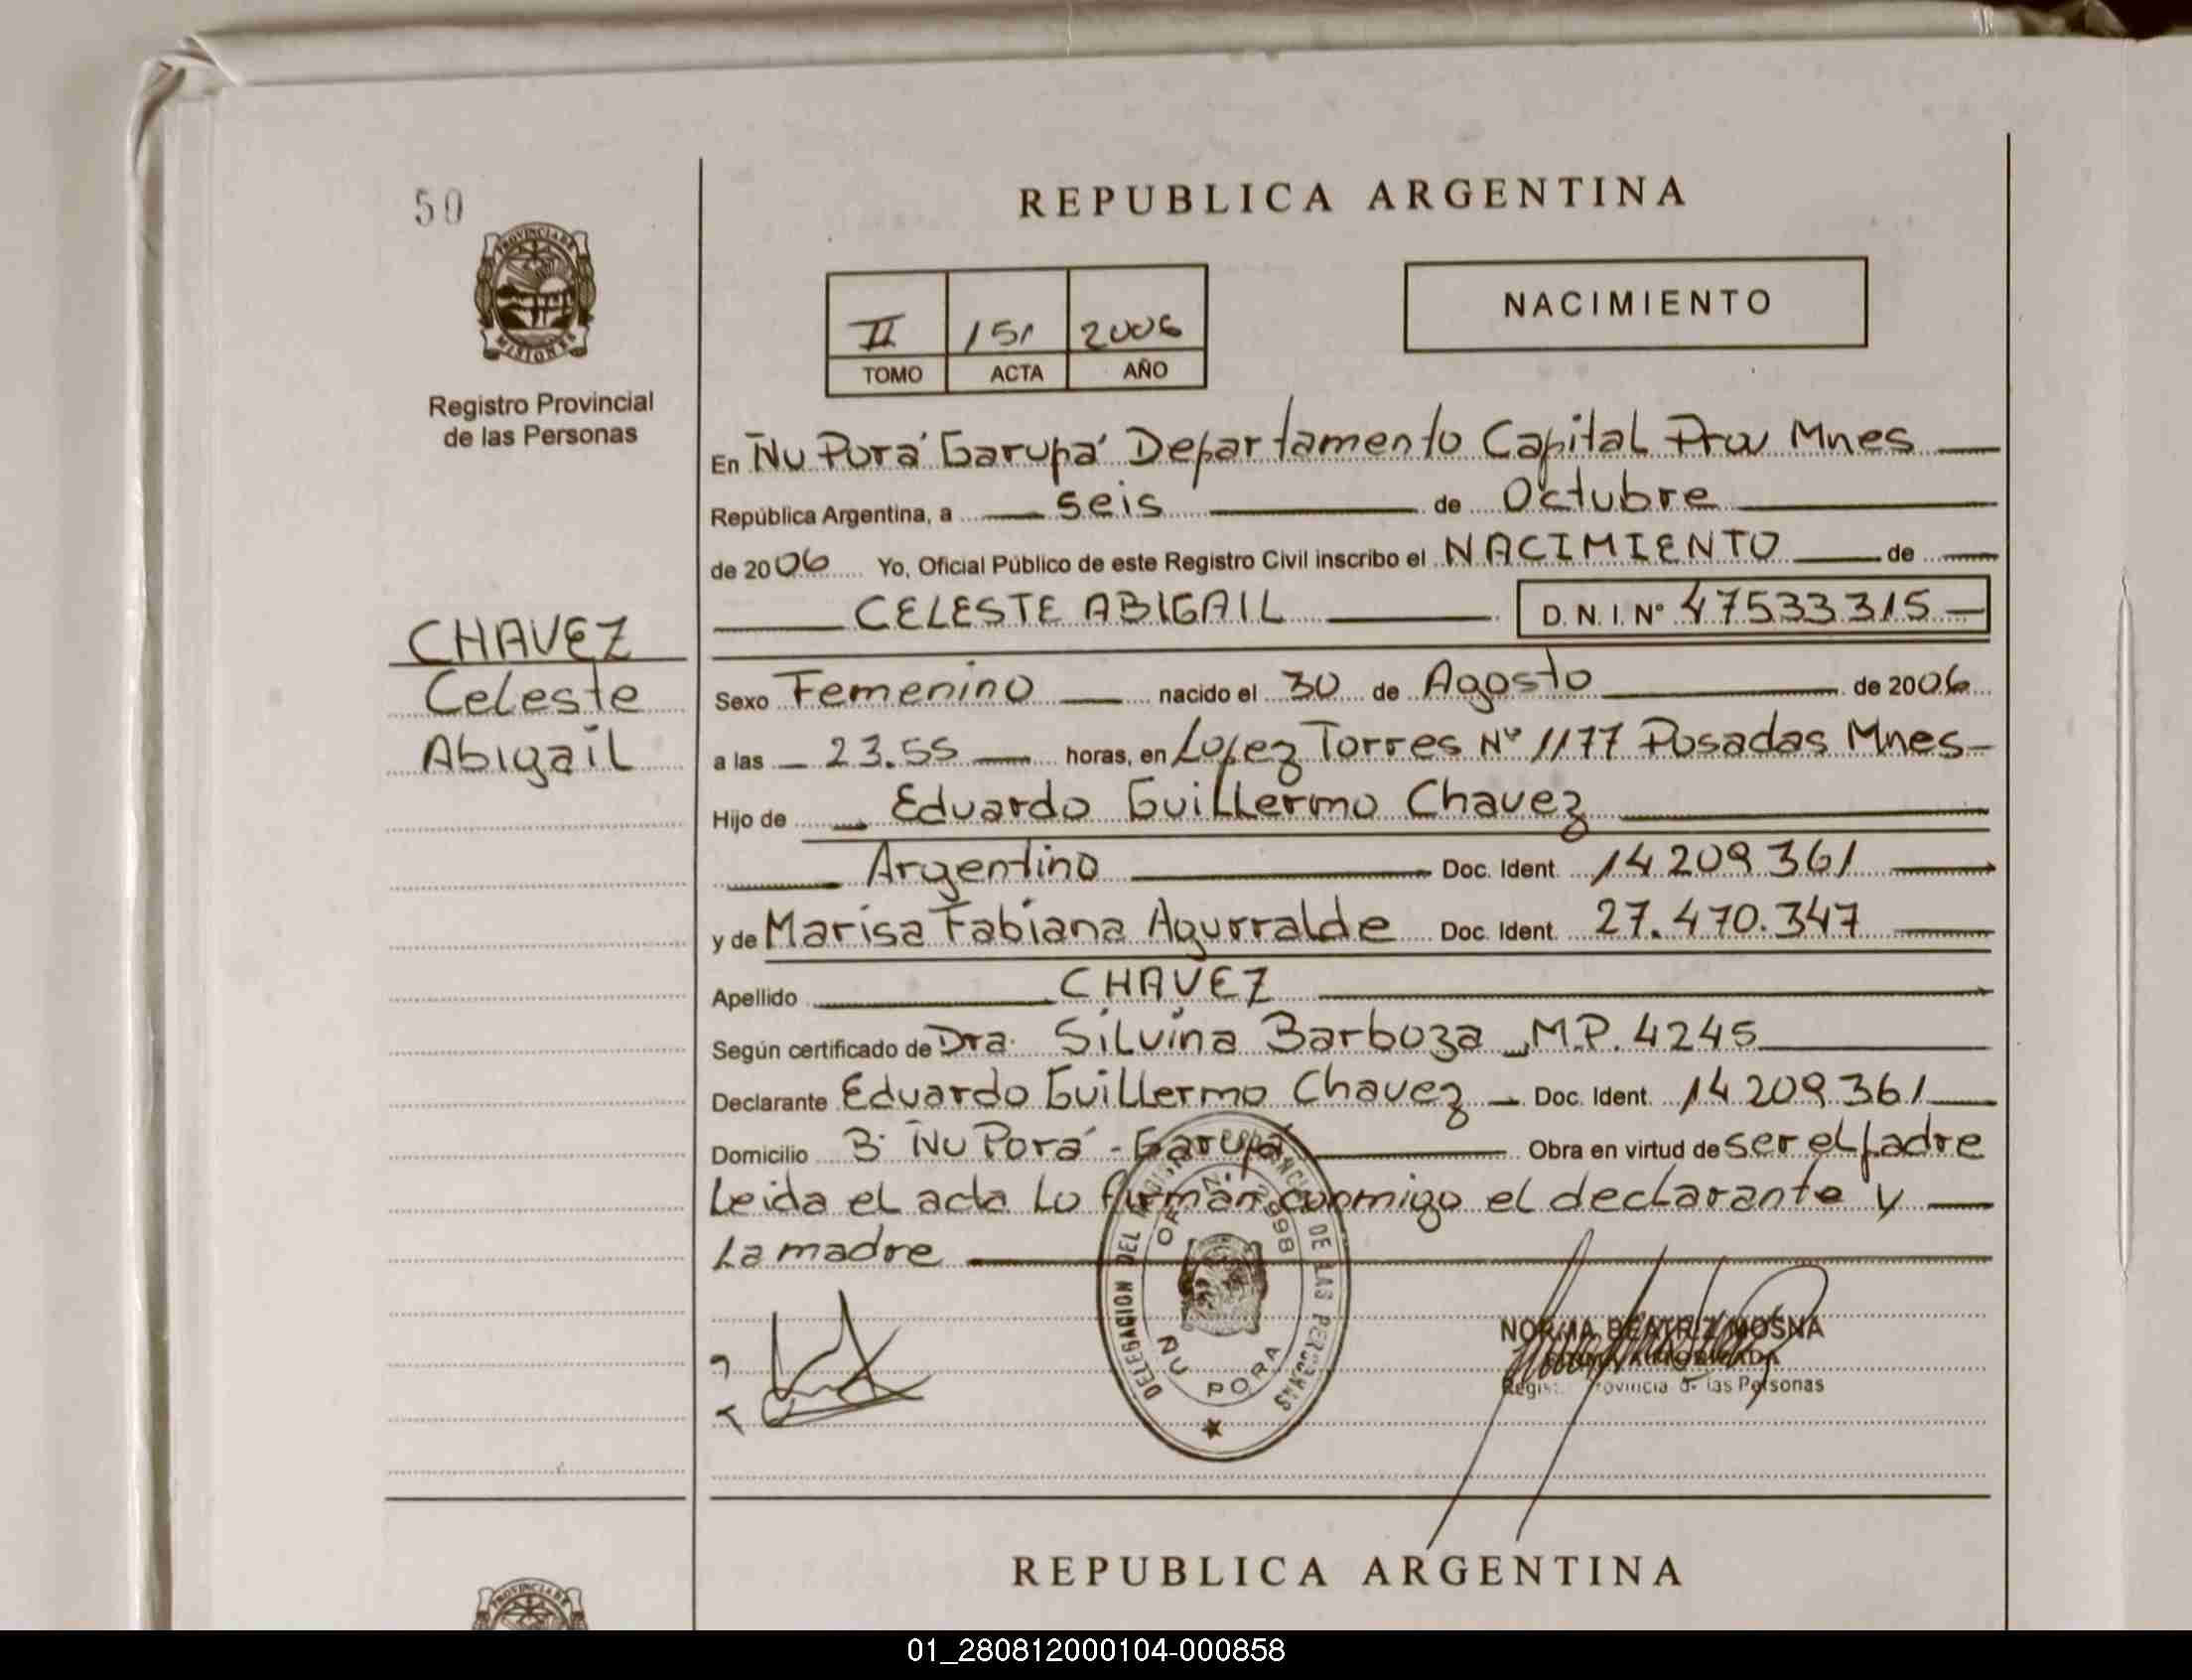 50
PROVINCIA DE
MISIONES
Registro Provincial
de las Personas
CHAVEZ
Celeste
Abigail
REPUBLICA ARGENTINA
II 151 2006
TOMO ACTA AÑO
NACIMIENTO
En Ñu Porá Garupá Departamento Capital Prov Mnes
República Argentina, a seis de Octubre
de 2006 Yo, Oficial Público de este Registro Civil inscribo el NACIMIENTO de
CELESTE ABIGAIL D.N.I. Nº 47533315
Sexo Femenino nacido el 30 de Agosto de 2006
a las 23.55 horas, en Lopez Torres Nº 1177 Posadas Mnes
Hijo de Eduardo Guillermo Chavez
Argentino Doc. Ident. 14209361
y de Marisa Fabiana Agurralde Doc. Ident. 27.470.347
Apellido CHAVEZ
Según certificado de Dra. Silvina Barboza M.P. 4245
Declarante Eduardo Guillermo Chavez Doc. Ident. 14209361
Domicilio Bº Ñu Porá - Garupá Obra en virtud de ser el padre
Leida el acta lo firman conmigo el declarante y
La madre
DELEGACION DEL DE LAS PERSONAS
ÑU PORA
NORMA BEATRIZ MOSNA
FIRMA AUTORIZADA
de las Personas
REPUBLICA ARGENTINA
PROVINCIA DE
01_280812000104-000858